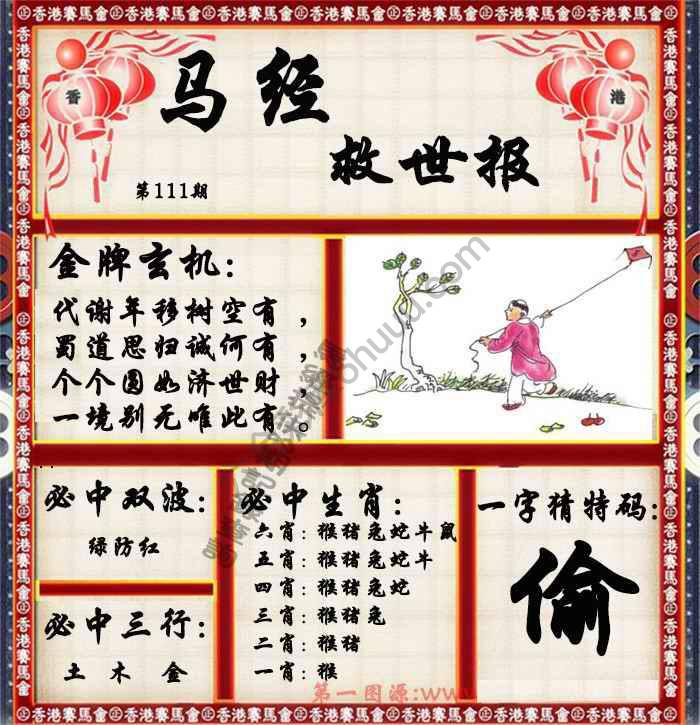 香港賽馬會
香 港
马经
救世报
第111期
金牌玄机:
代谢年移树空有，
蜀道思归诚何有，
个个圆如济世财，
一境别无唯此有。
必中双波:
绿防红
必中三行:
土 木 金
必中生肖:
六肖: 猴猪兔蛇牛鼠
五肖: 猴猪兔蛇牛
四肖: 猴猪兔蛇
三肖: 猴猪兔
二肖: 猴猪
一肖: 猴
一字猜特码:
偷
第一图源:www